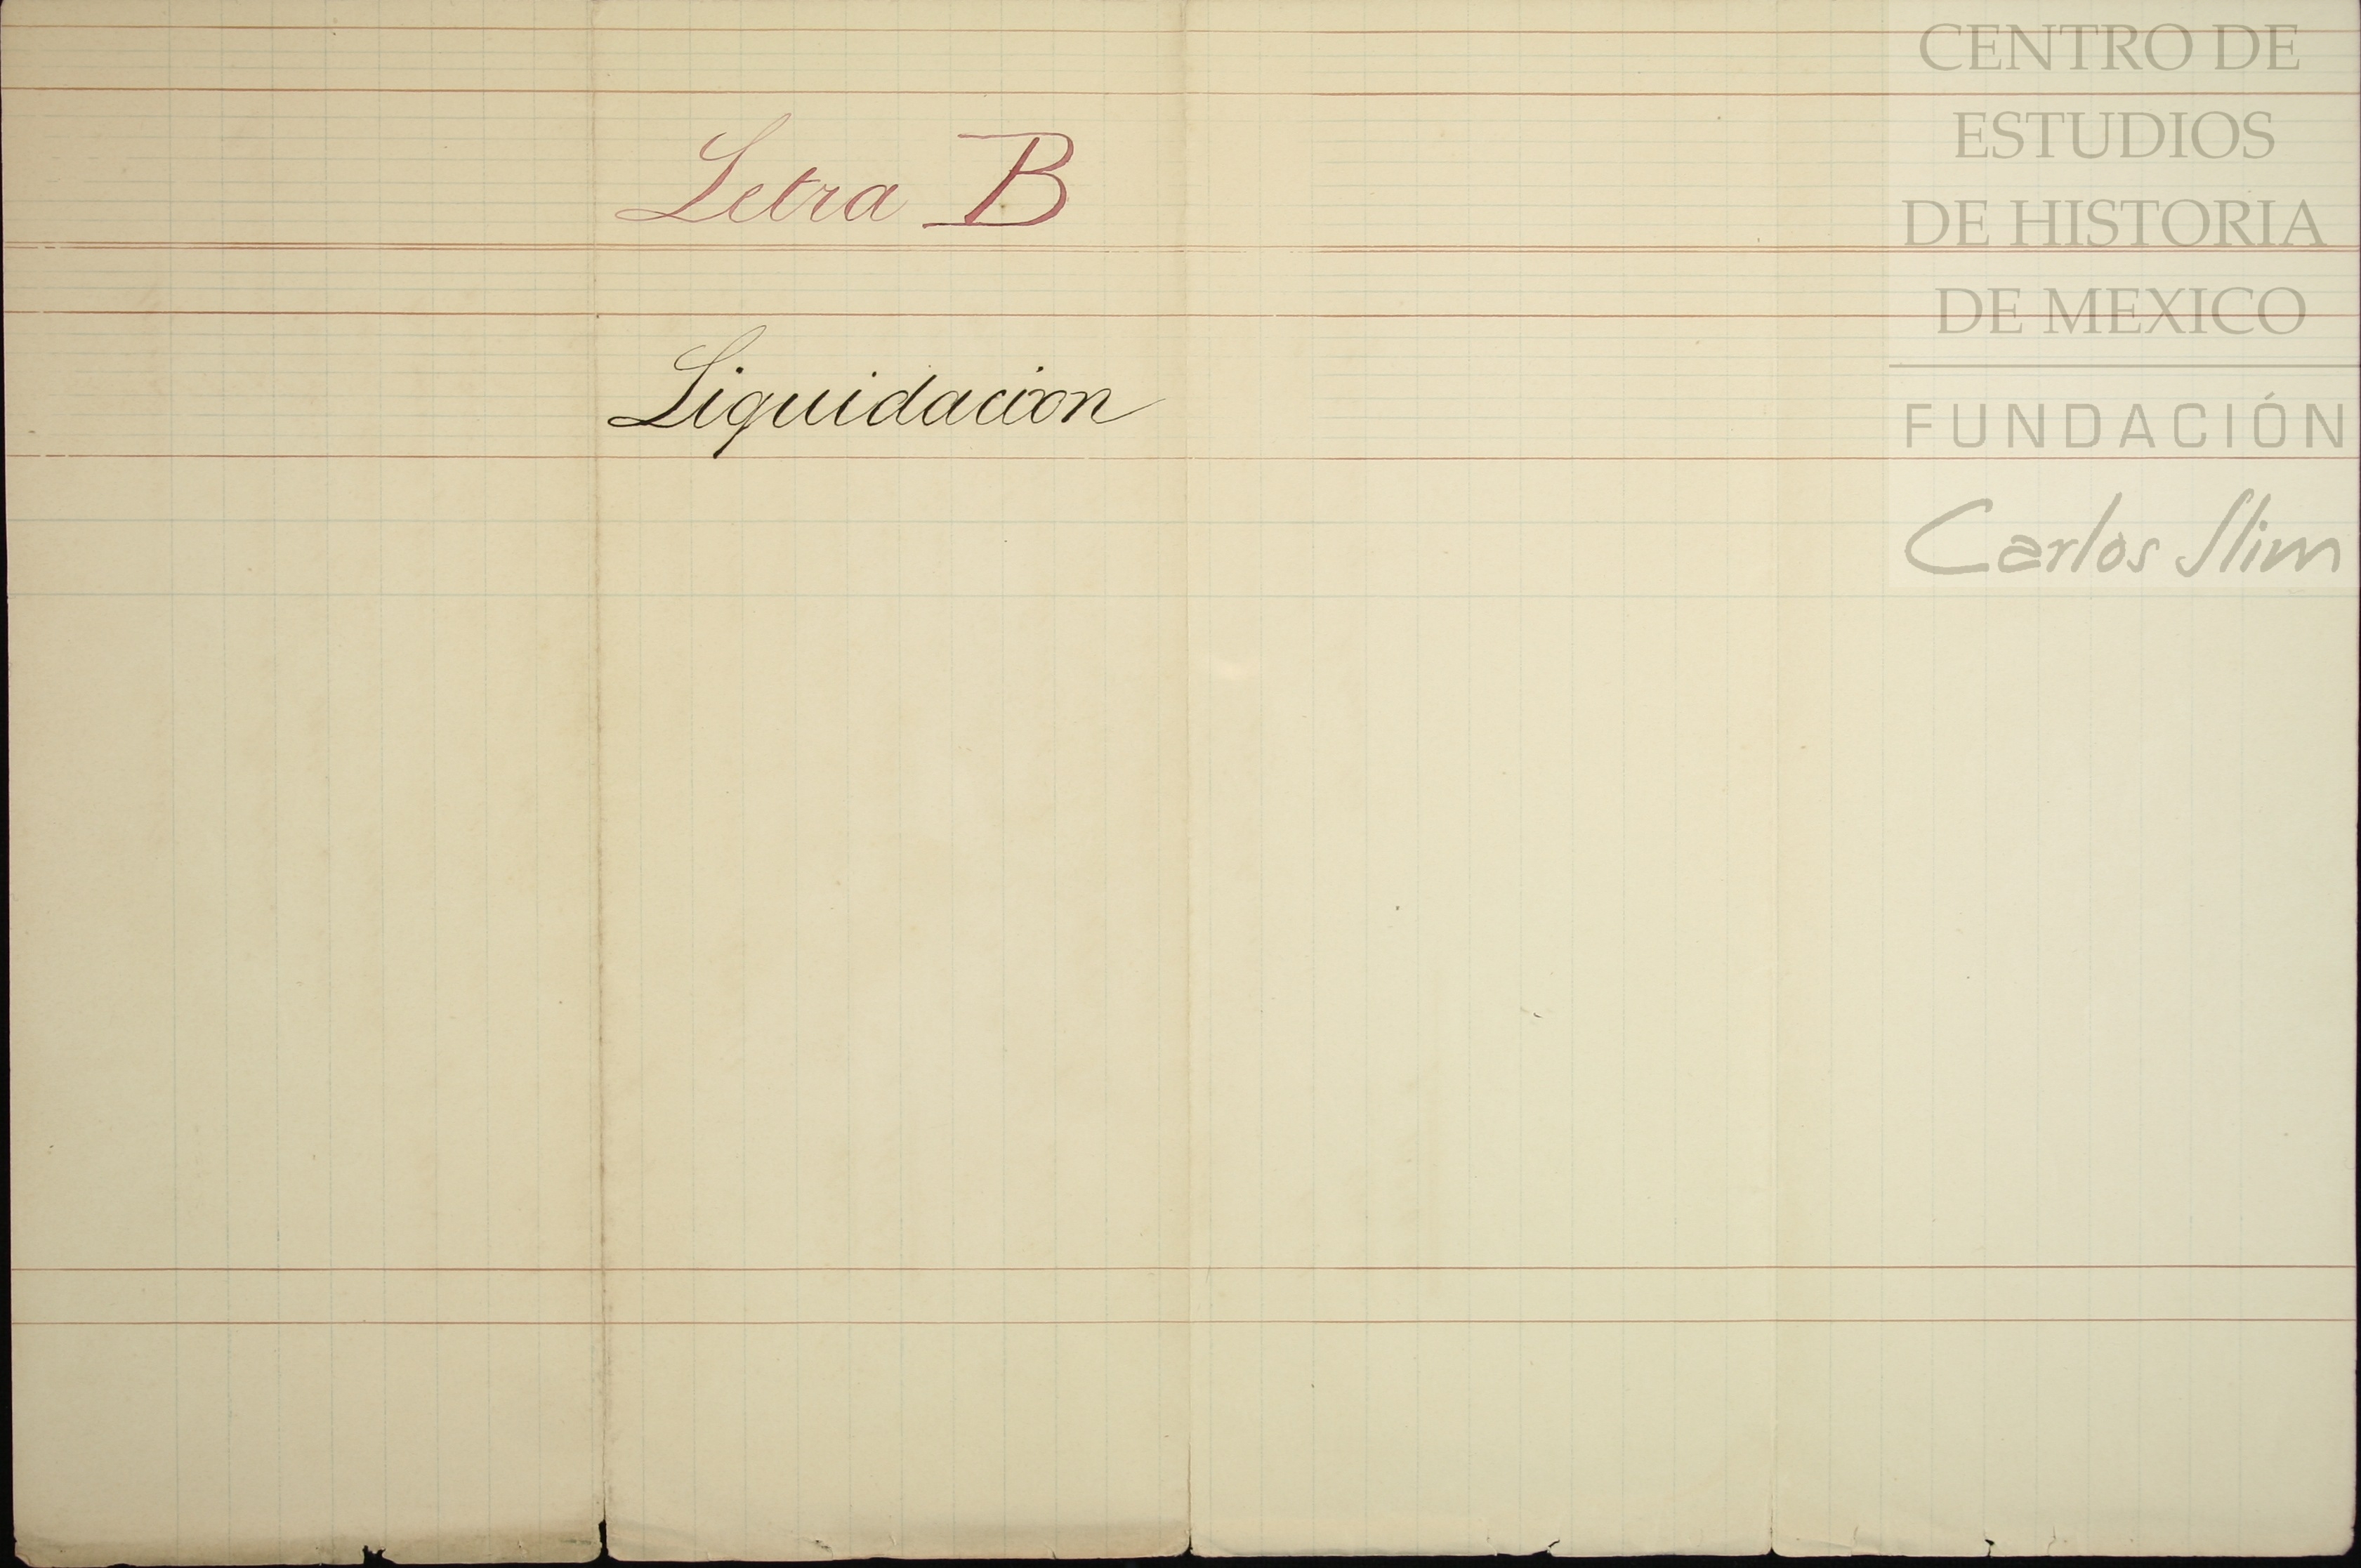 Letra B
Liquidacion
CENTRO DE
ESTUDIOS
DE HISTORIA
DE MEXICO
FUNDACIÓN
Carlos Slim